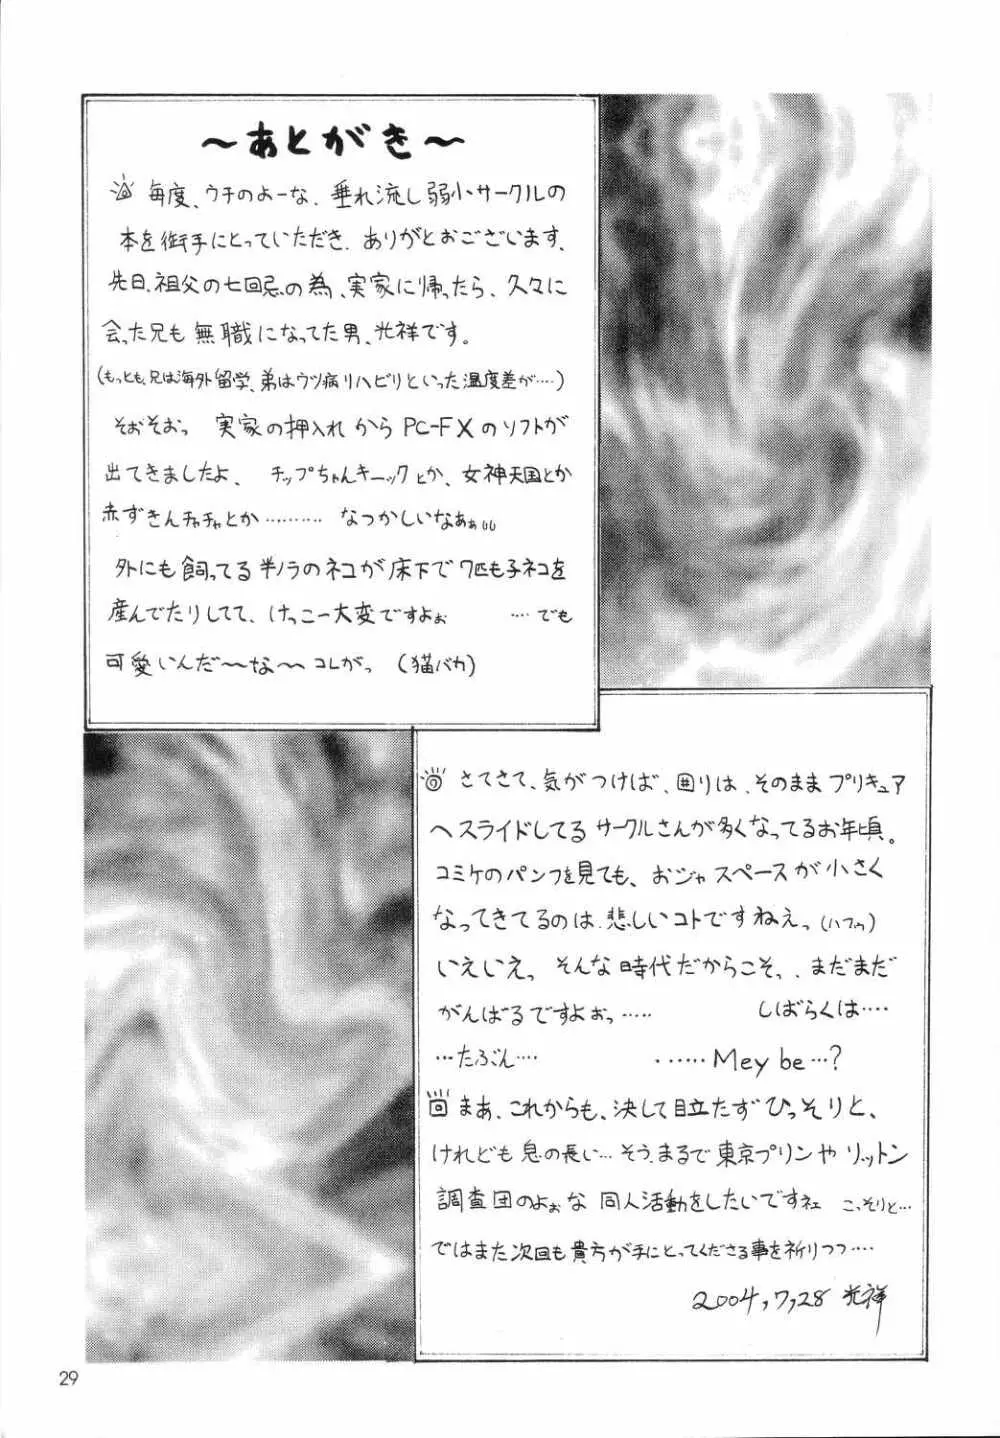 ～あとがき～
毎度、ウチのよーな、垂れ流し弱小サークルの
本を御手にとっていただき、ありがとおございます、
先日、祖父の七回忌の為、実家に帰ったら、久々に
会った兄も無職になってた男、光祥です。
(もっとも、兄は海外留学、弟はウツ病リハビリといった温度差が‥‥)
そぉそぉっ 実家の押入れからPC-FXのソフトが
出てきましたよ、 チップちゃんキーックとか、女神天国とか
赤ずきんチャチャとか………… なつかしいなあぁぉぉ
外にも飼ってる半ノラのネコが床下で7匹も子ネコを
産んでたりしてて、けっこー大変ですよぉ ‥‥でも
可愛いんだ〜な〜コレがっ (猫バカ)
さてさて、気がつけば、囲りは、そのままプリキュア
へスライドしてるサークルさんが多くなってるお年頃。
コミケのパンフを見ても、おジャスペースが小さく
なってきてるのは、悲しいコトですねえっ(ハフゥ)
いえいえっ そんな時代だからこそっ、まだまだ
がんばるですよぉっ‥‥‥ しばらくは‥‥
‥‥たぶん‥‥ ‥‥‥‥Mey be‥‥?
まあ、これからも、決して目立たずひっそりと、
けれども息の長い‥‥そう、まるで東京プリンやリットン
調査団のよぉな同人活動をしたいですネェ こっそりと‥‥
ではまた次回も貴方が手にとってくださる事を祈りつつ‥‥
2004,7,28 光祥
29